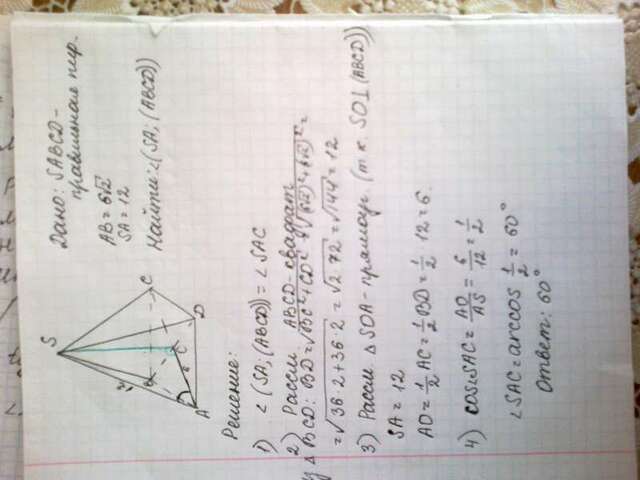 Дано: SABCD-
правильная пир.
AB = 6√2
SA = 12
Найти: ∠(SA; (ABCD))
S
C
D
A
Решение:
1) ∠(SA; (ABCD)) = ∠SAC
2) Рассм ABCD-квадрат
△BCD: BD = √BC²+CD² = √(6√2)²+(6√2)² =
= √36·2+36·2 = √2·72 = √144 = 12
3) Рассм △SOA-прямоуг. (т.к. SO⊥(ABCD))
SA = 12
AO = 1/2 AC = 1/2 BD = 1/2 · 12 = 6.
4) cos∠SAC = AO/AS = 6/12 = 1/2
∠SAC = arccos 1/2 = 60°
Ответ: 60°